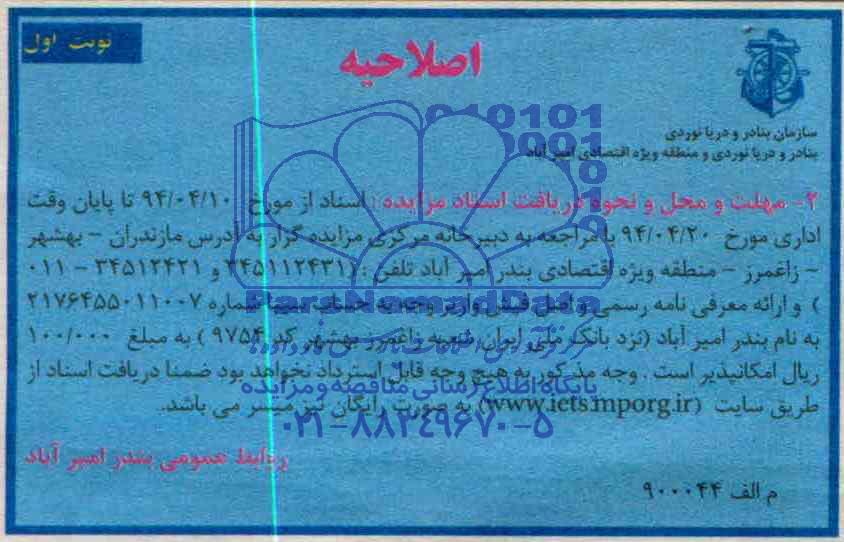 نوبت اول
اصلاحیه
سازمان بنادر و دریانوردی
بنادر و دریانوردی و منطقه ویژه اقتصادی امیر آباد
۲- مهلت و محل و نحوه دریافت اسناد مزایده : اسناد از مورخ ۹۴/۰۴/۱۰ تا پایان وقت
اداری مورخ ۹۴/۰۴/۲۰ با مراجعه به دبیرخانه مرکزی مزایده گزار به آدرس مازندران - بهشهر
- زاغمرز - منطقه ویژه اقتصادی بندر امیر آباد تلفن : (۳۴۵۱۱۲۴۳۱ و ۳۴۵۱۲۴۲۱ - ۰۱۱
) و ارائه معرفی نامه رسمی و اصل فیش واریز وجه به حساب سیبا شماره ۲۱۷۶۴۵۵۰۱۱۰۰۷
به نام بندر امیر آباد (نزد بانک ملی ایران شعبه زاغمرز بهشهر کد ۹۷۵۴ ) به مبلغ ۱۰۰/۰۰۰
ریال امکانپذیر است . وجه مذکور به هیچ وجه قابل استرداد نخواهد بود ضمنا دریافت اسناد از
طریق سایت (www.iets.mporg.ir) به صورت رایگان نیز میسر می باشد.
روابط عمومی بندر امیر آباد
م الف ۹۰۰۰۴۴
ParsNamadData
پایگاه اطلاع رسانی مناقصه و مزایده
۰۲۱-۸۸۳۴۹۶۷۰-۵